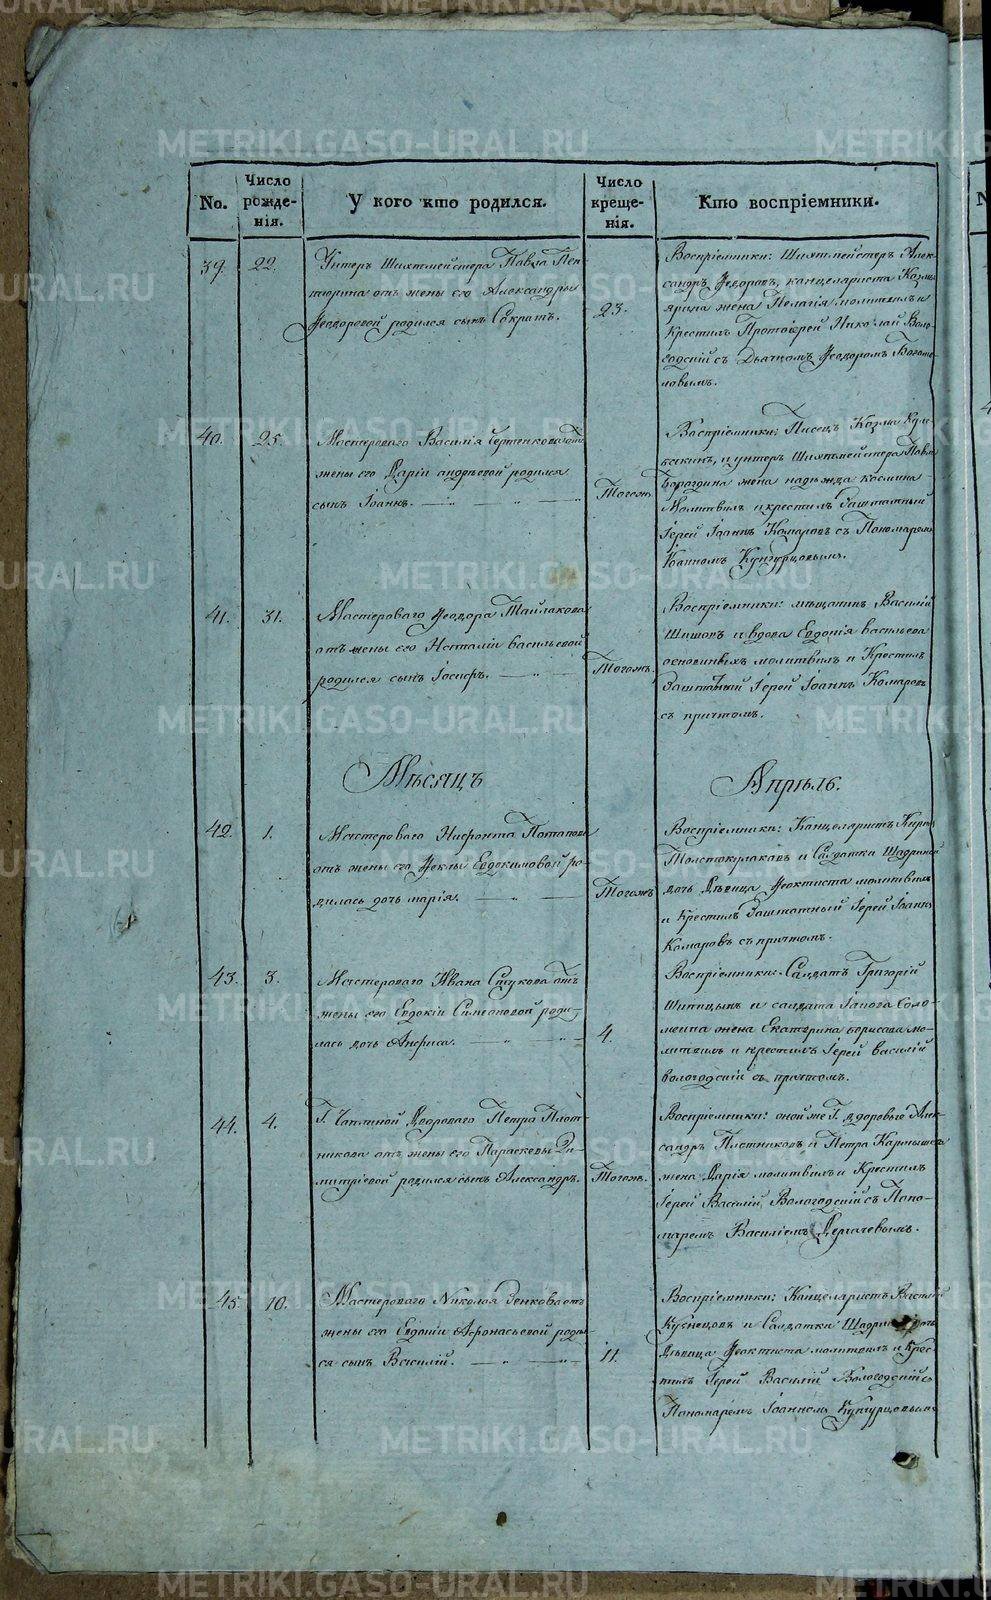 METRIKI.GASO-URAL.RU
No.
Число рожде-нія.
У кого кто родился.
Число креще-нія.
Кто воспріемники.
39.
22.
Унтеръ Шихтмейстера Павла Пен
тюрина отъ жены его Александры
Ѳеодоровой родился сынъ Сократъ.
23.
Воспріемники: Шихтмейстеръ Алек
сандръ Ѳедоровъ, канцеляриста
жена Пелагія молитвилъ и
Крестилъ Протоіерей Николай Воло
годскій съ Дьячкомъ Ѳеодоромъ Богомо
ловымъ.
40.
25.
Мастероваго Василія отъ
жены его Даріи андреевой родился
сынъ Іоаннъ.
Тогожъ
Воспріемники: Писецъ Козма
и унтеръ Шихтмейстера Павла
Бороздина жена надежда космина
Молитвилъ и крестилъ Заштатный
Іерей Іоаннъ Комаровъ съ Пономаремъ
Іоанномъ Кунгурцовымъ.
41.
31.
Мастероваго Ѳеодора Тайлакова
отъ жены его Наталіи васильевой
родился сынъ Іосифъ.
Тогожъ.
Воспріемники: мѣщанинъ Василій
Шишовъ и вдова Евдокія васильева
молитвилъ и Крестилъ
Заштатный Іерей Іоаннъ Комаровъ
съ причтомъ.
Мѣсяцъ
Апрѣль.
42.
1.
Мастероваго Нифонта Потапова
отъ жены его Ѳеклы Евдокимовой ро
дилась дочь марія.
Тогожъ
Воспріемники: Канцеляристъ Кирил
Толстокулаковъ и Салдатки Шадриной
дочь Дѣвица Ѳеоктиста молитвилъ
и Крестилъ Заштатный Іерей Іоаннъ
Комаровъ съ причтомъ.
43.
3.
Мастероваго Ивана отъ
жены его Евдокіи Симеоновой роди-
лась дочь Анфиса.
4.
Воспріемники: Салдатъ Григорій
Шипицынъ и салдата Соло-
меина жена Екатерина борисова мо-
литвилъ и крестилъ Іерей василій
вологодскій съ причтомъ.
44.
4.
Г. Чаплиной Двороваго Петра Плот
никова отъ жены его Параскевы Ди-
митріевой родился сынъ Александръ.
Тогожъ.
Воспріемники: оной же Г. дворовый Алек
сандръ Плотниковъ и Петра
жена Дарія молитвилъ и Крестилъ
Іерей Василій Вологодскій съ Поно-
маремъ Василіемъ Дергачевымъ.
45.
10.
Мастероваго Николая Зенкова отъ
жены его Евдокіи Афонасьевой родил
ся сынъ Василій.
11.
Воспріемники: Канцеляристъ Василій
Кузнецовъ и Салдатки дочь
Дѣвица Ѳеоктиста молитвилъ и Крес-
тилъ Іерей Василій Вологодскій съ
Пономаремъ Іоанномъ Кунгурцовымъ